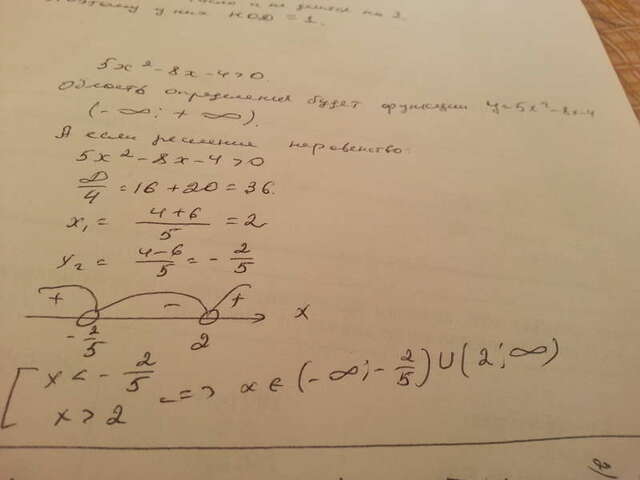 Поэтому у них НОД = 1.
5x² - 8x - 4 > 0.
Область определения будет функции y = 5x² - 8x - 4
(-∞; +∞).
А если решения неравенство:
5x² - 8x - 4 > 0
D/4 = 16 + 20 = 36.
x₁ = (4+6)/5 = 2
x₂ = (4-6)/5 = -2/5
+ - + x
-2/5 2
[ x < -2/5
x > 2 <=> x ∈ (-∞; -2/5) ∪ (2; ∞)